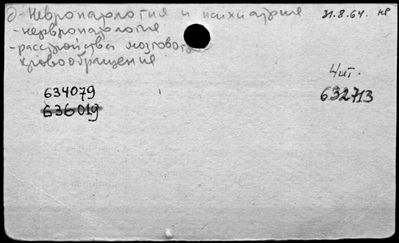 О-Невропатология и психиатрия 31.8.64. НВ
-невропатология
-расстройства мозгового
кровообращения
4 шт.
634079 632713
636019